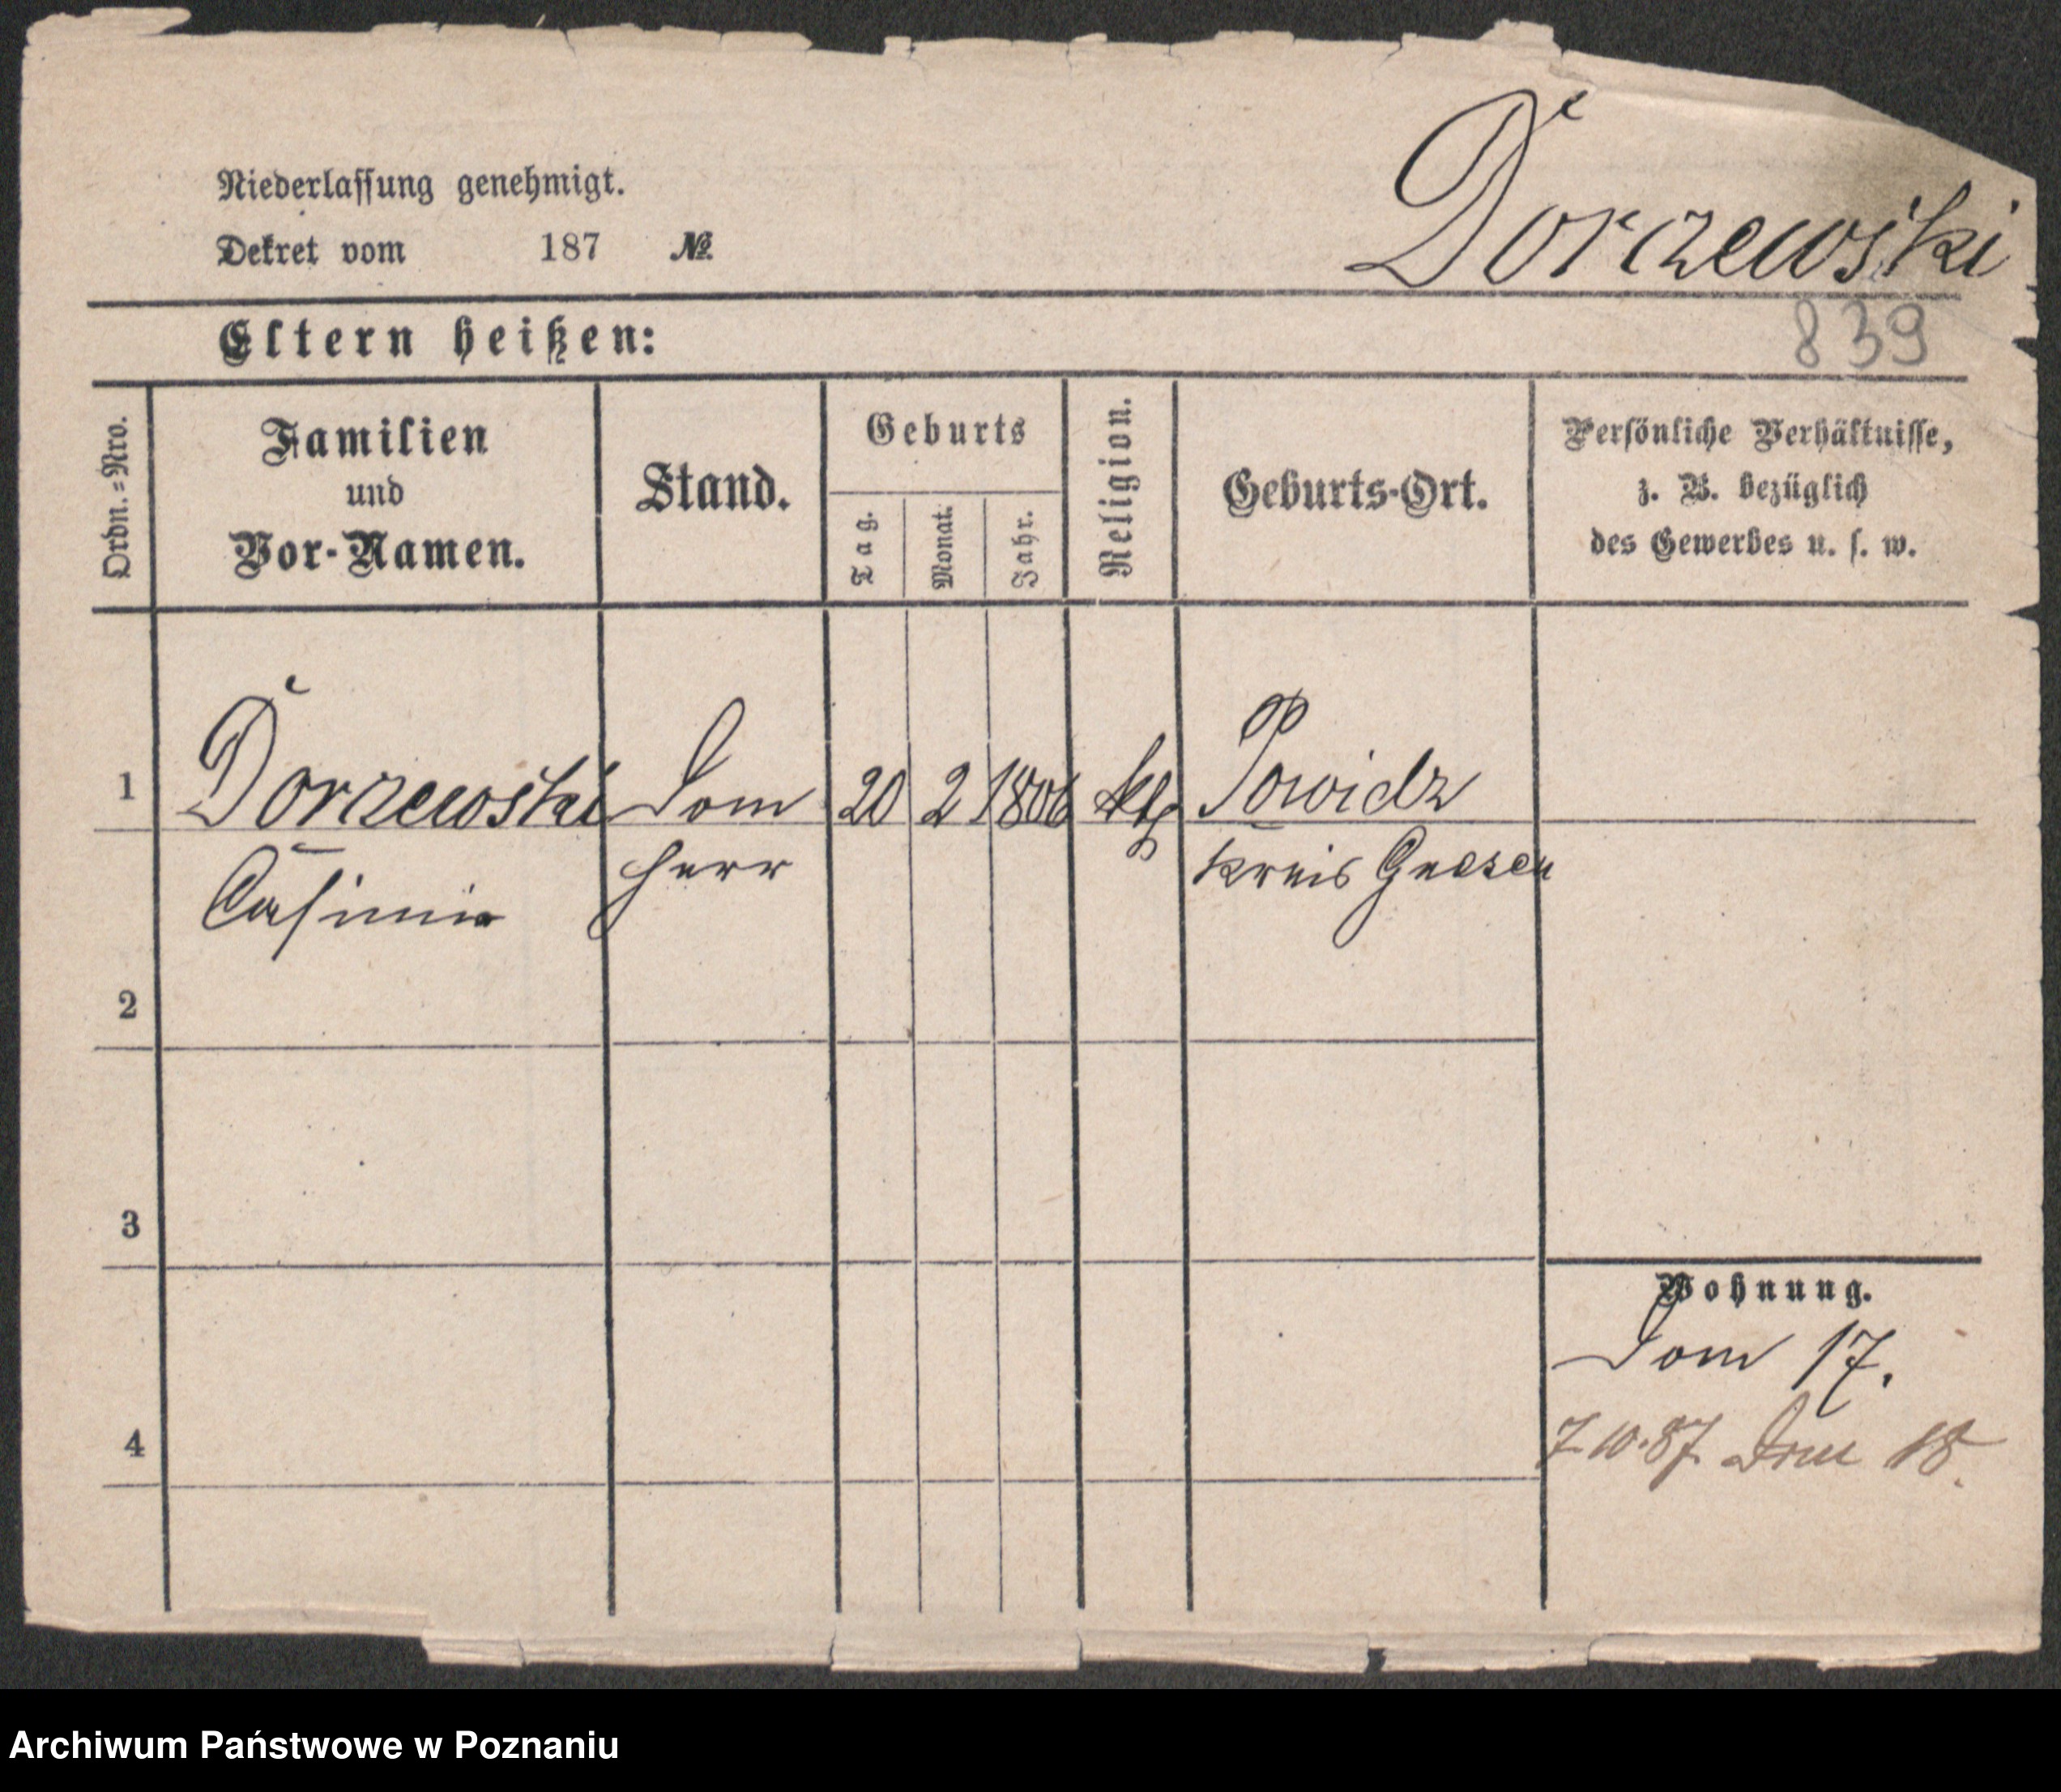 Dorszewski
Niederlassung genehmigt.
Dekret vom 187 №
839
Eltern heißen:
Ordn.=Nro.
Familien
und
Vor-Namen.
Stand.
Geburts
Tag.
Monat.
Jahr.
Religion.
Geburts-Ort.
Persönliche Verhältnisse,
z. B. bezüglich
des Gewerbes u. s. w.
1 Dorszewski Dom 20 2 1806 kth Powidz
Casimir herr Kreis Gnesen
2
3
4
Wohnung.
Dom 17.
7.10.87 Dom 18.
Archiwum Państwowe w Poznaniu